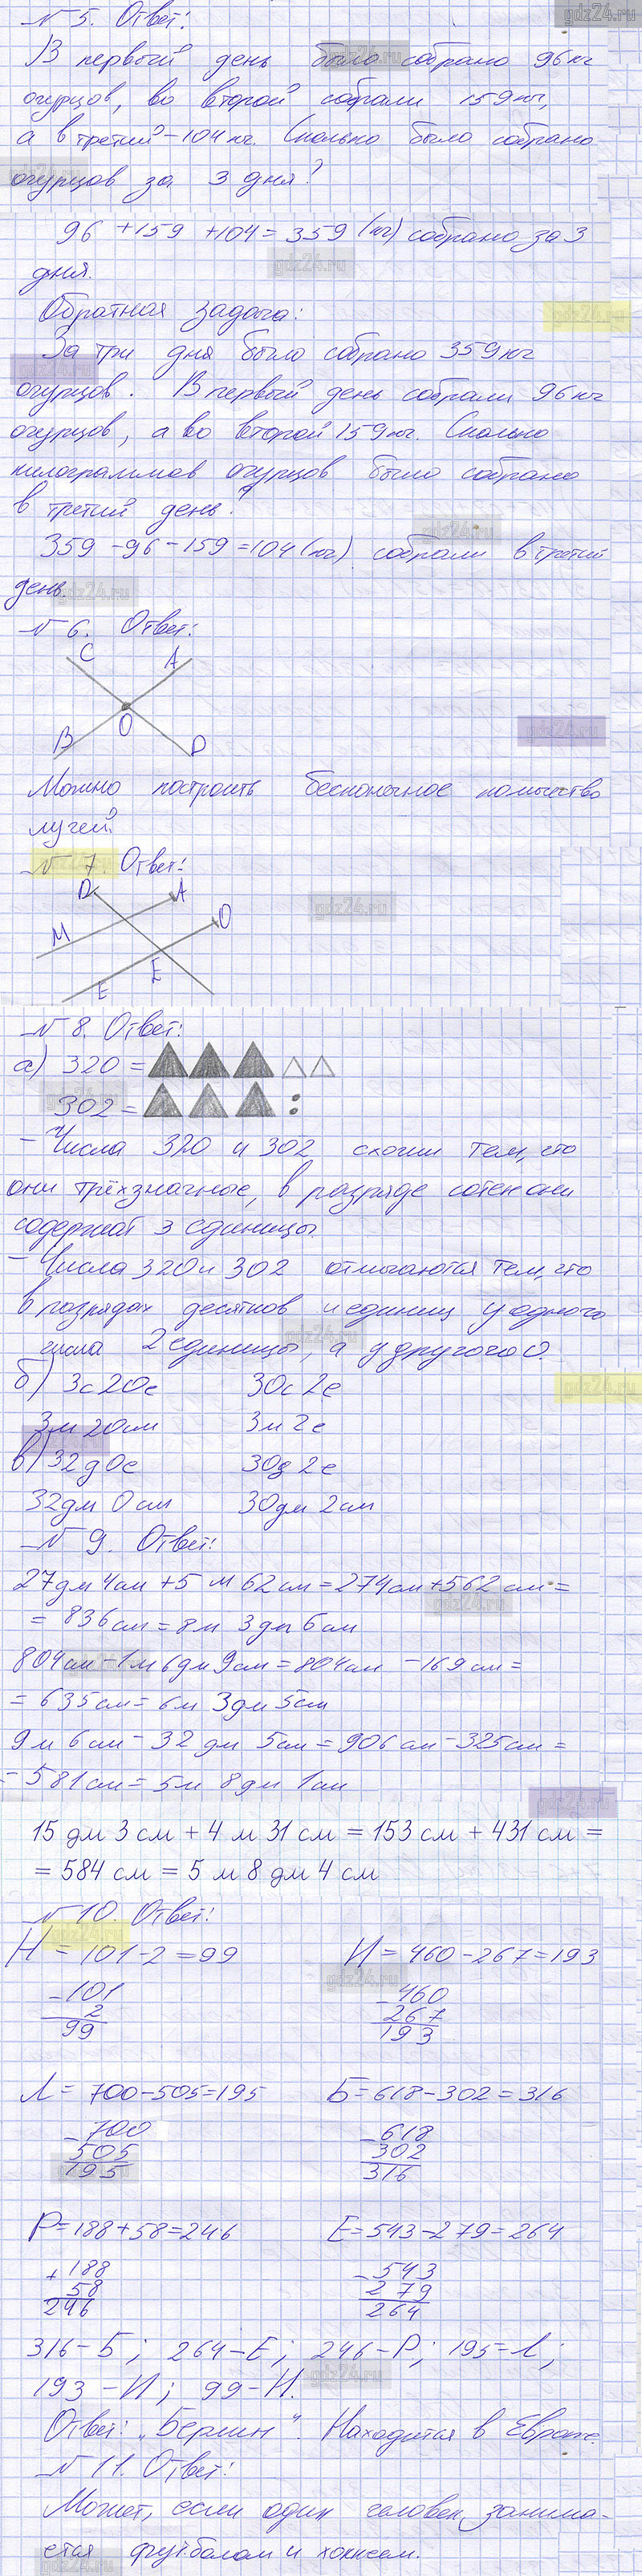 № 5. Ответ:
В первый день было собрано 96 кг
огурцов, во второй собрали 159 кг,
а в третий - 104 кг. Сколько было собрано
огурцов за 3 дня?
96 + 159 + 104 = 359 (кг) собрано за 3
дня.
Обратная задача:
За три дня было собрано 359 кг
огурцов. В первый день собрали 96 кг
огурцов, а во второй 159 кг. Сколько
килограммов огурцов было собрано
в третий день?
359 - 96 - 159 = 104 (кг) собрали в третий
день.
№ 6. Ответ:
C A
O
B D
Можно построить бесконечное количество
лучей.
№ 7. Ответ:
D A O
M
E
E
№ 8. Ответ:
а) 320 =
302 =
- Числа 320 и 302 схожи тем, что
они трёхзначные, в разряде сотен они
содержат 3 единицы.
- Числа 320 и 302 отличаются тем, что
в разрядах десятков и единиц у одного
числа 2 единицы, а у другого 0.
б) 3с 20е 30с 2е
3м 20см 3м 2е
в) 32д 0е 30д 2е
32дм 0см 30дм 2см
№ 9. Ответ:
27 дм 4 см + 5 м 62 см = 274 см + 562 см =
= 836 см = 8 м 3 дм 6 см
804 см - 1 м 6 дм 9 см = 804 см - 169 см =
= 635 см = 6 м 3 дм 5 см
9 м 6 см - 32 дм 5 см = 906 см - 325 см =
= 581 см = 5 м 8 дм 1 см
15 дм 3 см + 4 м 31 см = 153 см + 431 см =
= 584 см = 5 м 8 дм 4 см
№ 10. Ответ:
Н = 101 - 2 = 99 И = 460 - 267 = 193
- 101 - 460
2 267
99 193
Л = 700 - 505 = 195 Б = 618 - 302 = 316
- 700 - 618
505 302
195 316
Р = 188 + 58 = 246 Е = 543 - 279 = 264
+ 188 - 543
58 279
246 264
316 - Б; 264 - Е; 246 - Р; 195 = Л;
193 - И; 99 - Н.
Ответ: „Берлин“. Находится в Европе.
№ 11. Ответ:
Может, если один человек занима-
ется футболом и хоккеем.
gdz24.ru